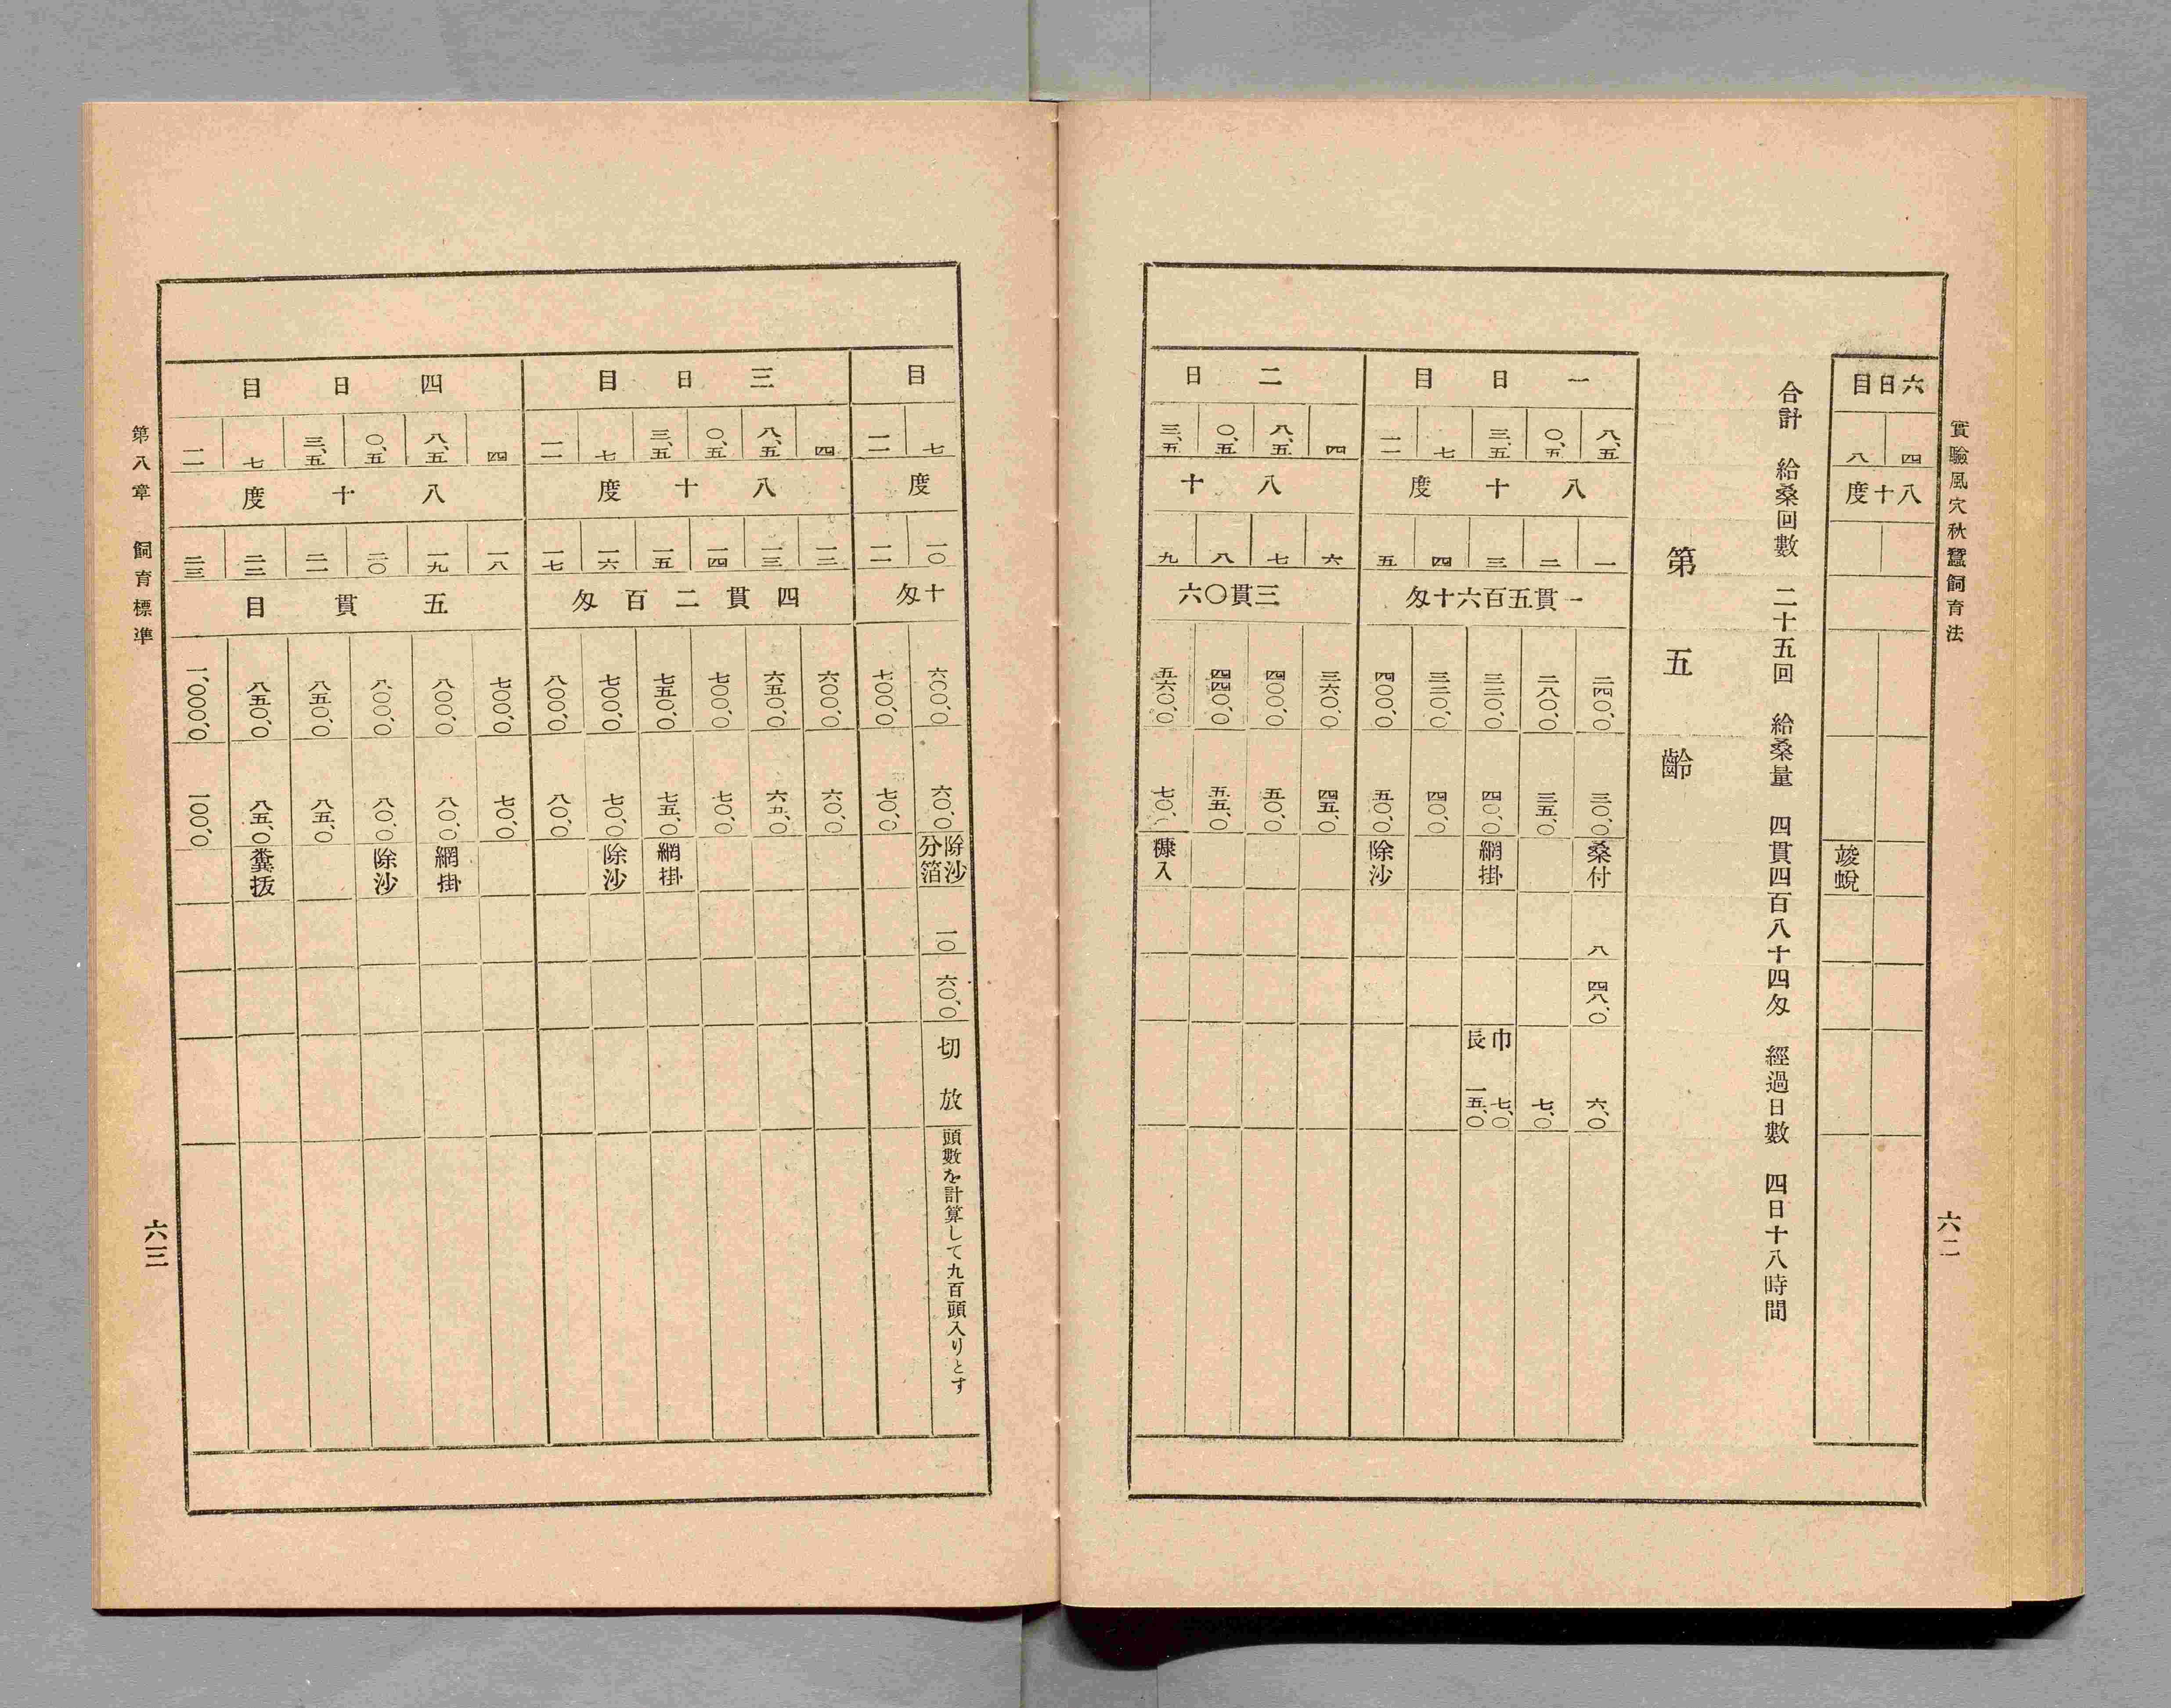 實驗風穴秋蠶飼育法
六二
六日目
四 八
八十度
竣蛻
合計 給桑回數 二十五回 給桑量 四貫四百八十四匁 經過日數 四日十八時間
第五齡
一日目
八、五 〇、五 三、五 七 一一
八十度
一 二 三 四 五
一貫五百六十匁
二四〇、〇 二八〇、〇 三二〇、〇 三二〇、〇 四〇〇、〇
三〇、〇 三五、〇 四〇、〇 四〇、〇 五〇、〇
桑付 網掛 除沙
八
四八、〇
六、〇 七、〇 巾七、〇 長一五、〇
二日
四 八、五 〇、五 三、五
八十
六 七 八 九
三貫〇六
三六〇、〇 四〇〇、〇 四四〇、〇 五六〇、〇
四五、〇 五〇、〇 五五、〇 七〇、〇
糠入
目
七 一一
度
一〇 一一
十匁
六〇〇、〇 七〇〇、〇
六〇、〇 七〇、〇
除沙分箔
一〇
六〇、〇
切放
頭數を計算して九百頭入りとす
三日目
四 八、五 〇、五 三、五 七 一一
八十度
一二 一三 一四 一五 一六 一七
四貫二百匁
六〇〇、〇 六五〇、〇 七〇〇、〇 七五〇、〇 七〇〇、〇 八〇〇、〇
六〇、〇 六五、〇 七〇、〇 七五、〇 七〇、〇 八〇、〇
網掛 除沙
四日目
四 八、五 〇、五 三、五 七 一一
八十度
一八 一九 二〇 二一 二二 二三
五貫目
七〇〇、〇 八〇〇、〇 八〇〇、〇 八五〇、〇 八五〇、〇 一、〇〇〇、〇
七〇、〇 八〇、〇 八〇、〇 八五、〇 八五、〇 一〇〇、〇
網掛 除沙 糞抜
第八章 飼育標準
六三